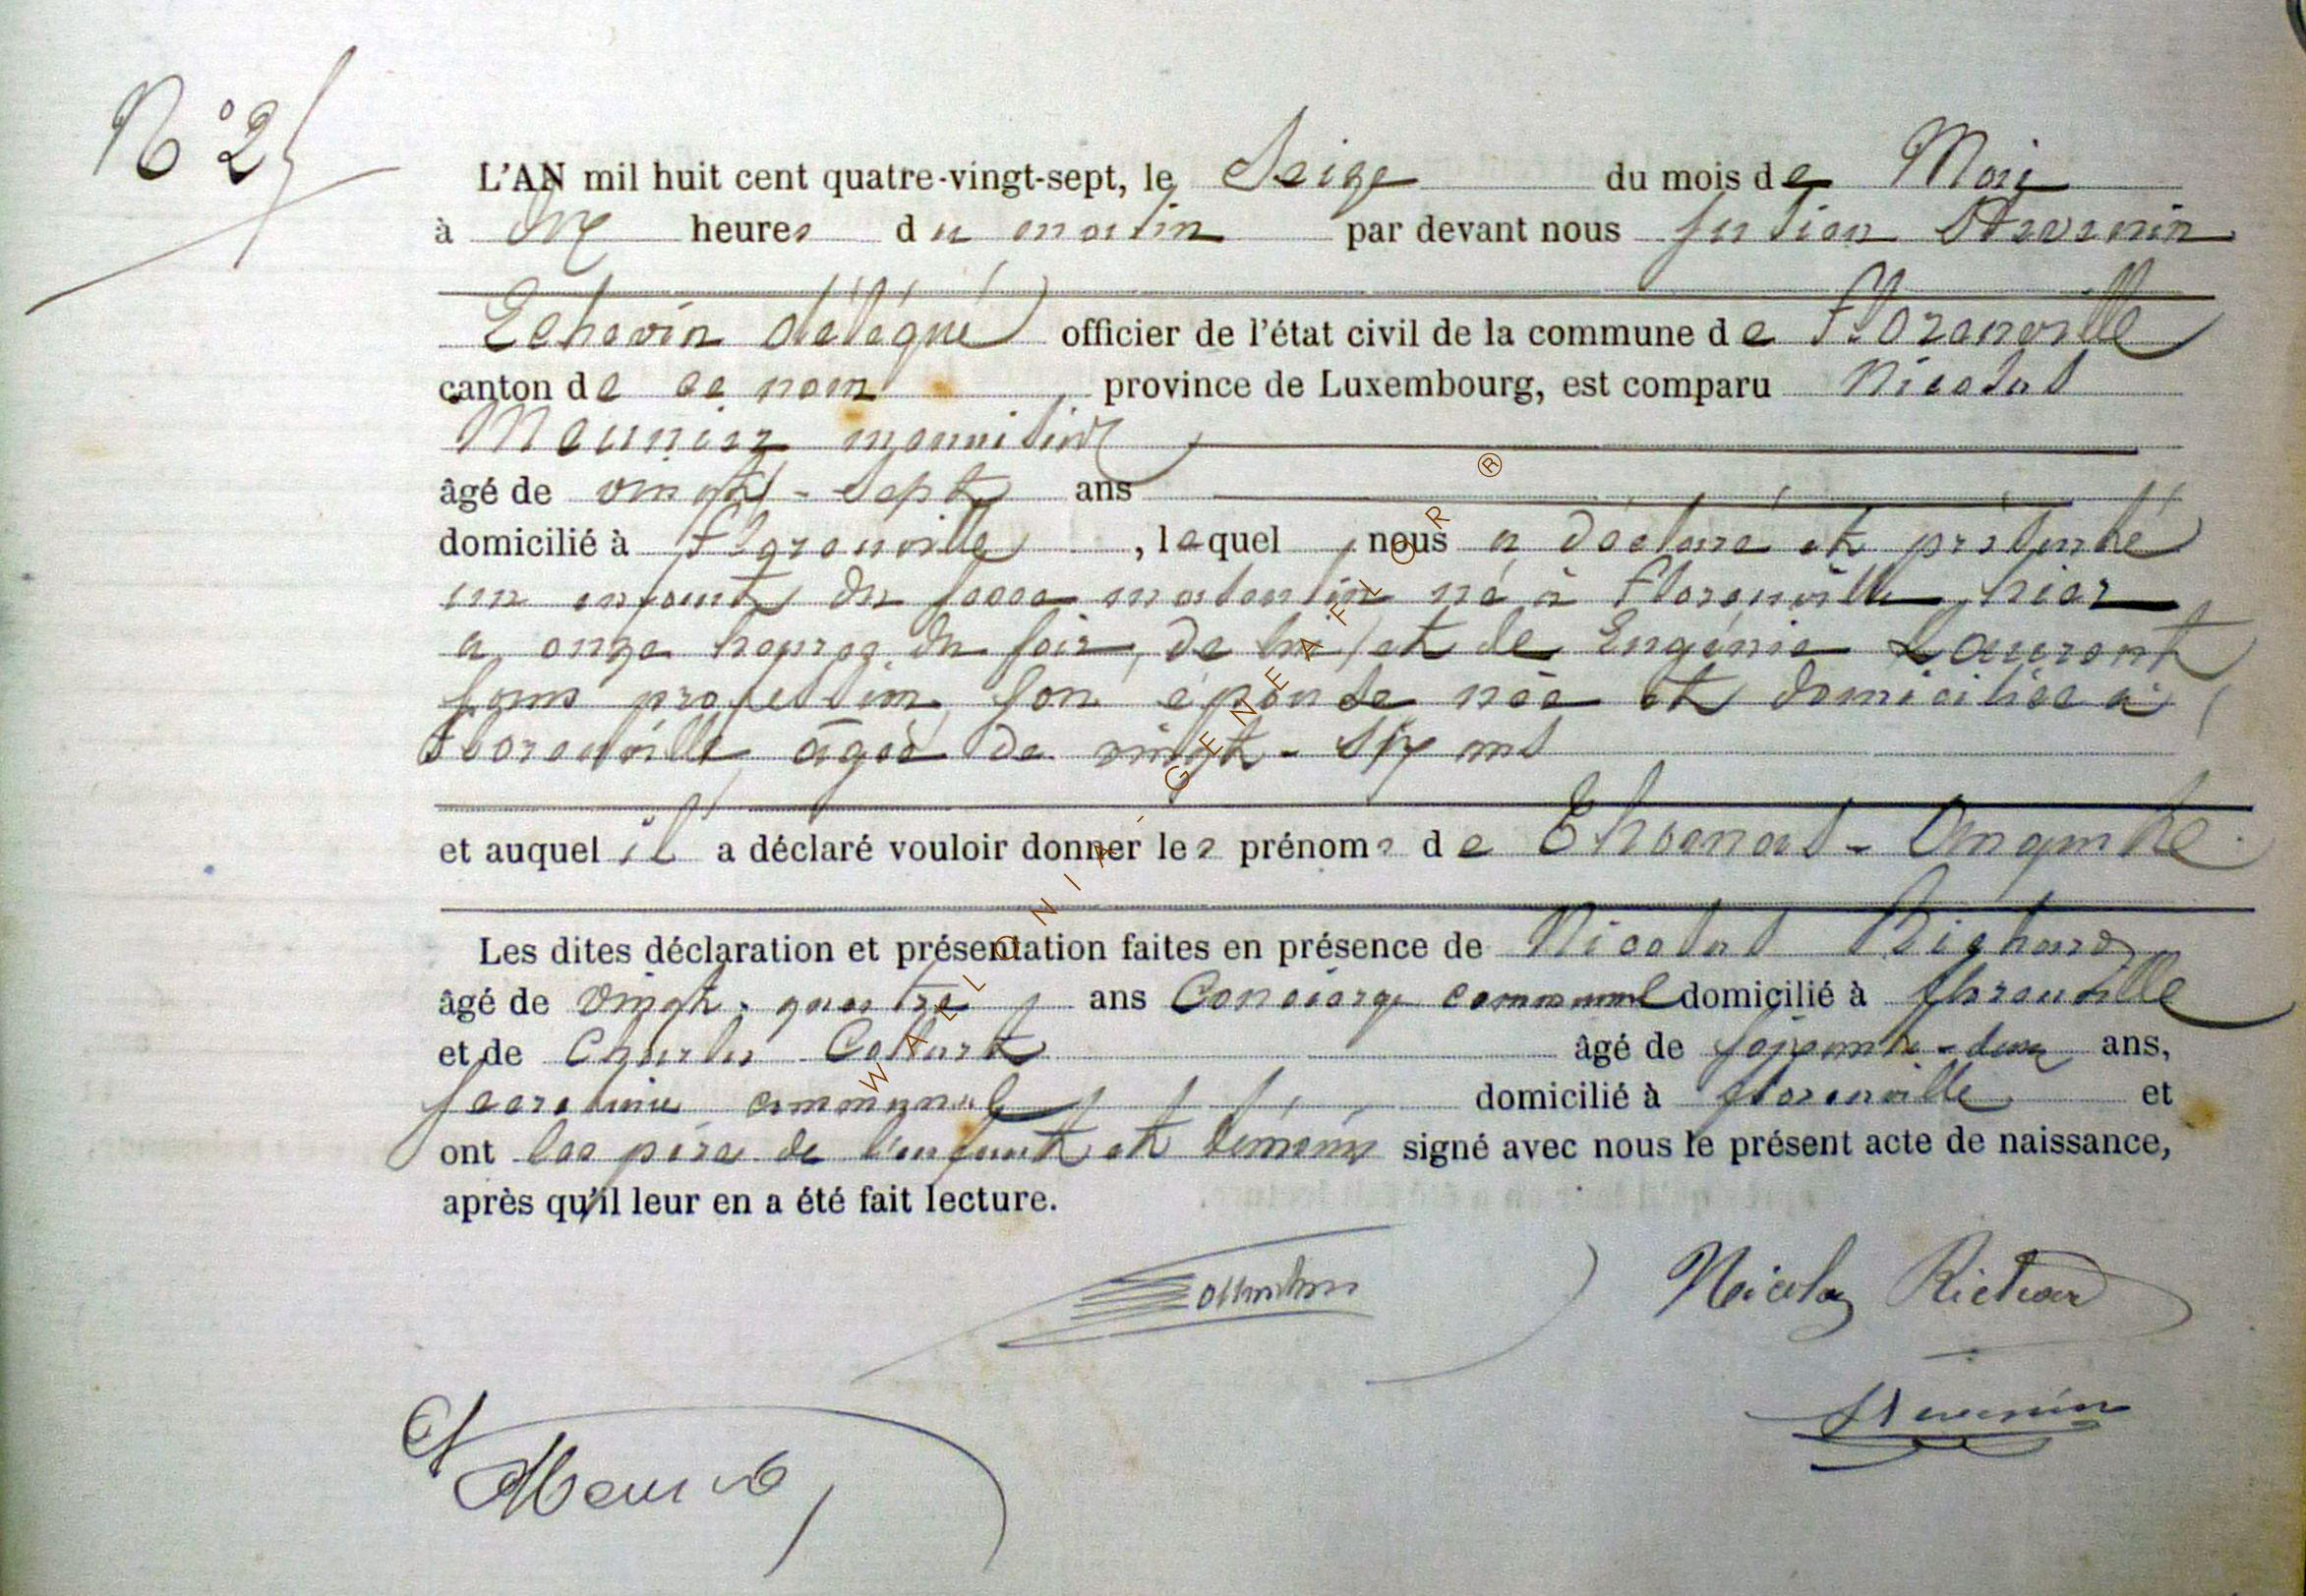 N° 25
L'AN mil huit cent quatre-vingt-sept, le Seize du mois de Mai
à dix heures du matin par devant nous Julien Stevenin
Echevin délégué officier de l'état civil de la commune de Florenville
canton de ce nom, province de Luxembourg, est comparu Nicolas
Meunier menuisier
âgé de vingt-sept ans
domicilié à Florenville, lequel nous a déclaré et présenté
un enfant du sexe masculin né à Florenville hier
a onze heures du soir, de lui et de Eugénie Laurent
sans profession, son épouse née et domiciliée à
Florenville âgée de vingt-six ans
et auquel il a déclaré vouloir donner les prénoms de Thomas-
Les dites déclaration et présentation faites en présence de Nicolas Richard
âgé de vingt-quatre ans Concierge communal domicilié à florenville
et de Charles Collart âgé de soixante-deux ans,
secrétaire communal domicilié à florenville et
ont les père de l'enfant et témoins signé avec nous le présent acte de naissance,
après qu'il leur en a été fait lecture.
Nicolas Richard
Stevenin
WALLONIA-GENEAFLOR ®